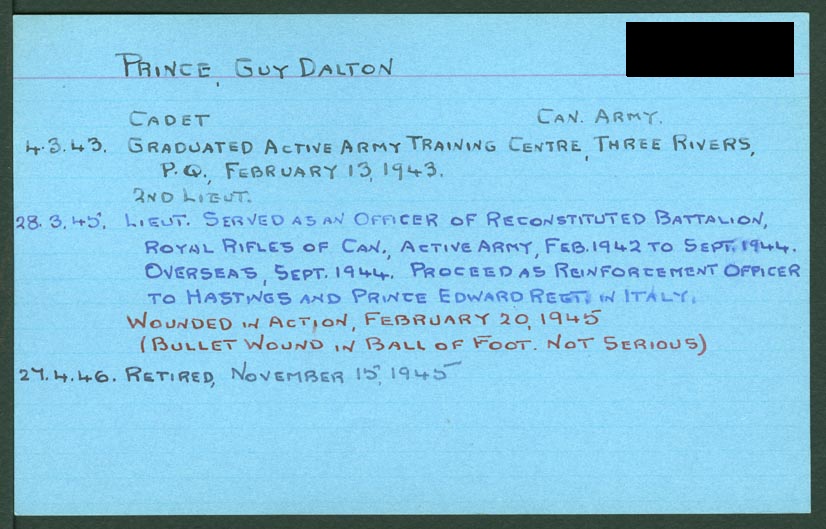 PRINCE, GUY DALTON
CADET CAN. ARMY.
4.3.43. GRADUATED ACTIVE ARMY TRAINING CENTRE, THREE RIVERS,
P.Q., FEBRUARY 13, 1943.
2ND LIEUT.
28.3.45. LIEUT. SERVED AS AN OFFICER OF RECONSTITUTED BATTALION,
ROYAL RIFLES OF CAN., ACTIVE ARMY, FEB. 1942 TO SEPT. 1944.
OVERSEAS, SEPT. 1944. PROCEED AS REINFORCEMENT OFFICER
TO HASTINGS AND PRINCE EDWARD REGT. IN ITALY.
WOUNDED IN ACTION, FEBRUARY 20, 1945
(BULLET WOUND IN BALL OF FOOT. NOT SERIOUS)
27.4.46. RETIRED, NOVEMBER 15, 1945